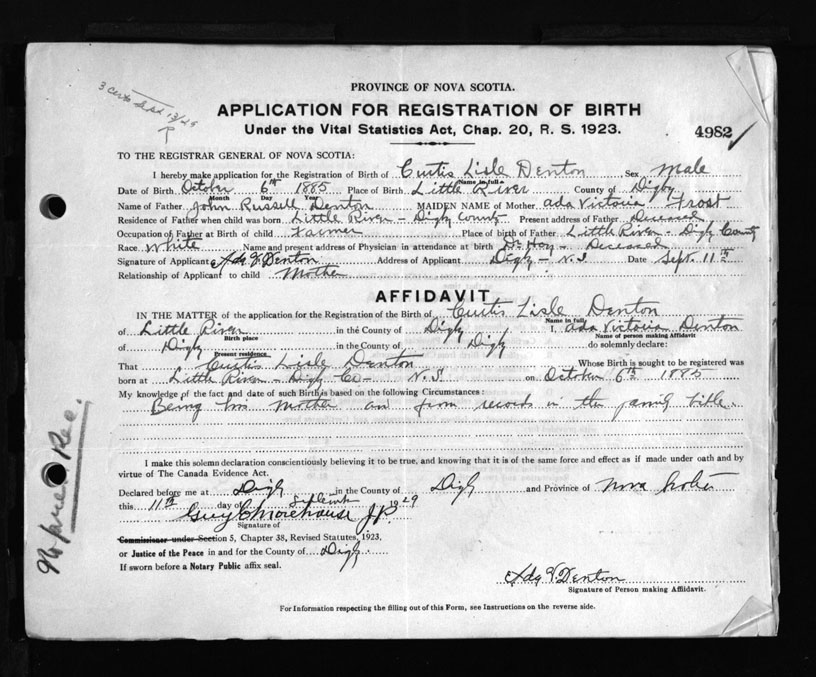 3 Certs Sept 13/29
PROVINCE OF NOVA SCOTIA.
APPLICATION FOR REGISTRATION OF BIRTH
Under the Vital Statistics Act, Chap. 20, R. S. 1923.
4982
TO THE REGISTRAR GENERAL OF NOVA SCOTIA:
I hereby make application for the Registration of Birth of Curtis Lisle Denton Sex Male
Name in full
Date of Birth October 6th 1885 Place of Birth Little River County of Digby
Month Day Year
Name of Father John Russell Denton MAIDEN NAME of Mother Ada Victoria Frost
Residence of Father when child was born Little River - Digby County Present address of Father Deceased
Occupation of Father at Birth of child Farmer Place of birth of Father Little River - Digby County
Race White Name and present address of Physician in attendance at birth Dr Hoy - Deceased
Signature of Applicant Ada V. Denton Address of Applicant Digby - N.S Date Sept. 11th
Relationship of Applicant to child Mother
AFFIDAVIT
IN THE MATTER of the application for the Registration of the Birth of Curtis Lisle Denton
Name in full
of Little River in the County of Digby I, Ada Victoria Denton
Birth place Name of person making Affidavit
of Digby in the County of Digby do solemnly declare:
Present residence
That Curtis Lisle Denton Whose Birth is sought to be registered was
born at Little River - Digby Co - N.S on October 6th 1885
My knowledge of the fact and date of such Birth is based on the following Circumstances:
Being his Mother and from records in the family bible.
I make this solemn declaration conscientiously believing it to be true, and knowing that it is of the same force and effect as if made under oath and by
virtue of The Canada Evidence Act.
Declared before me at Digby in the County of Digby and Province of Nova Scotia
this 11th day of September 1929
Guy E Morehouse J.P.
Signature of
Commissioner under Section 5, Chapter 38, Revised Statutes, 1923,
or Justice of the Peace in and for the County of Digby
If sworn before a Notary Public affix seal.
Ada V. Denton
Signature of Person making Affidavit.
For Information respecting the filling out of this Form, see Instructions on the reverse side.